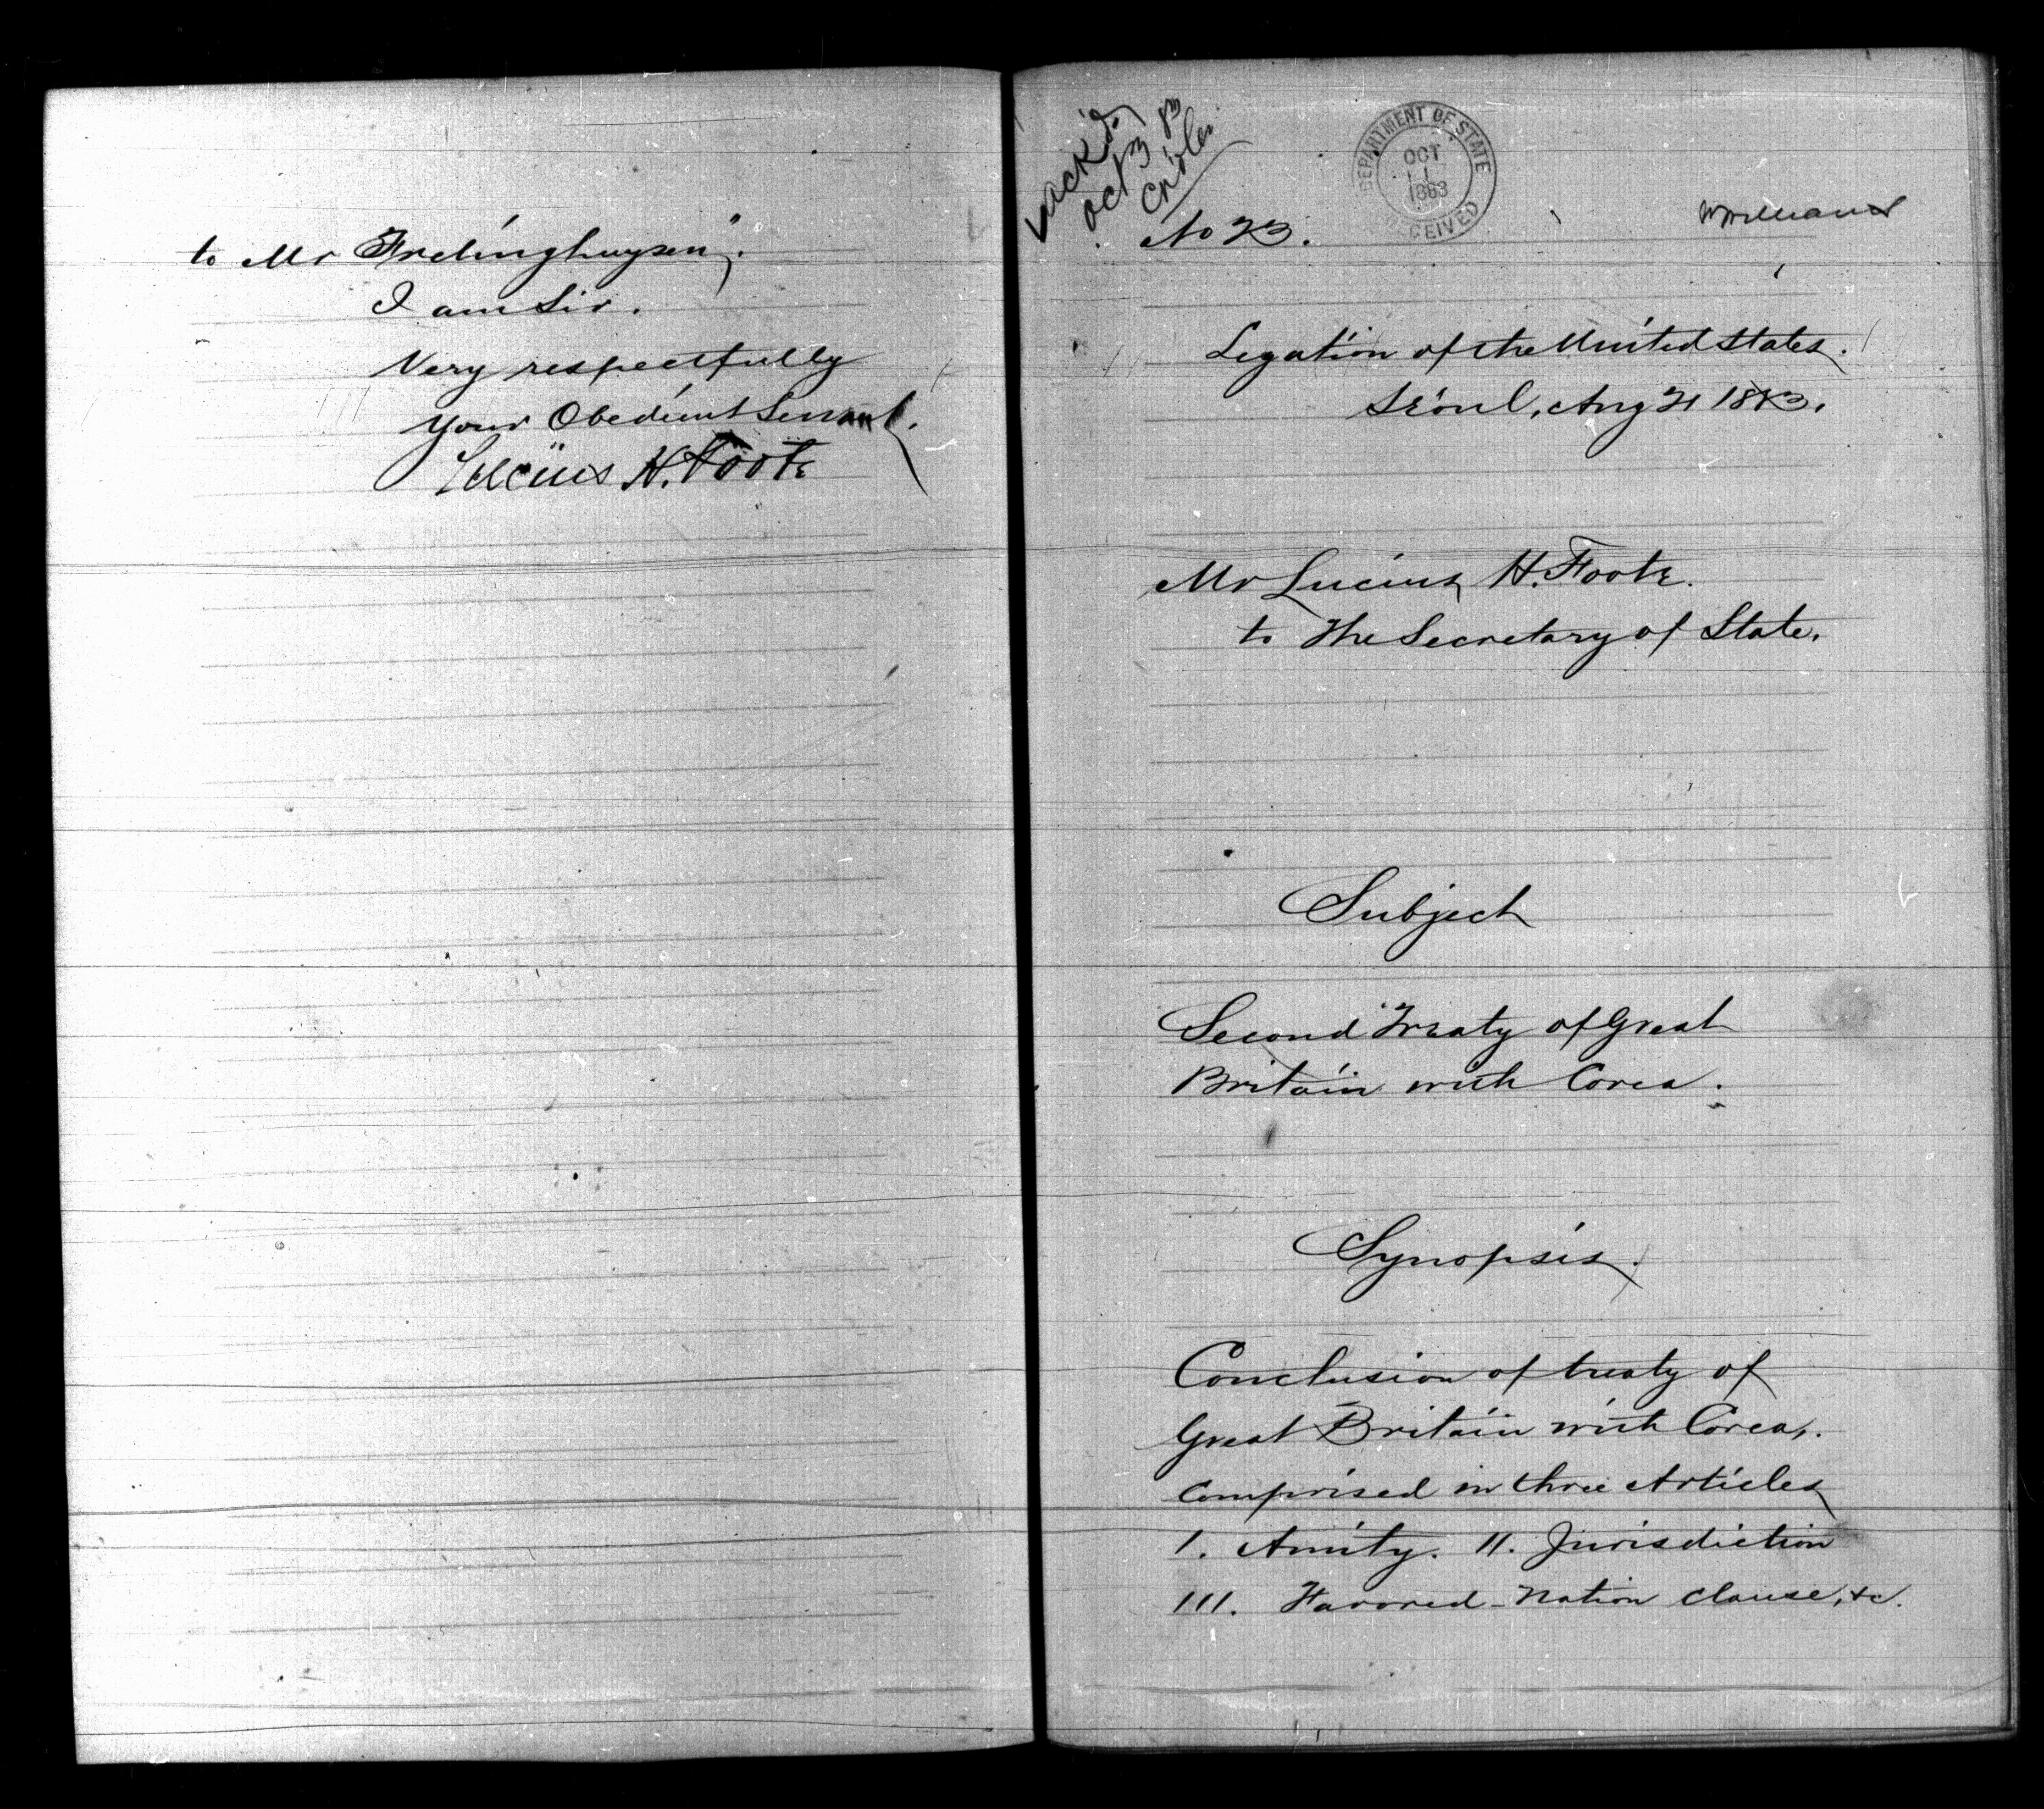 to Mr Frelinghuysen".
I am Sir.
Very respectfully
Your Obedient Servant.
Lucius H. Foote
ack'd.
Oct 3 83
Cridler
DEPARTMENT OF STATE
OCT
1
1883
RECEIVED
No 23.
Legation of the United States.
Séoul, Aug 21 1883.
Mr Lucius H. Foote.
to The Secretary of State.
Subject
Second Treaty of Great
Britain with Corea.
Synopsis.
Conclusion of treaty of
Great Britain with Corea,.
Comprised in three Articles
I. Amity. II. Jurisdiction
III. Favored-Nation Clause, &c.